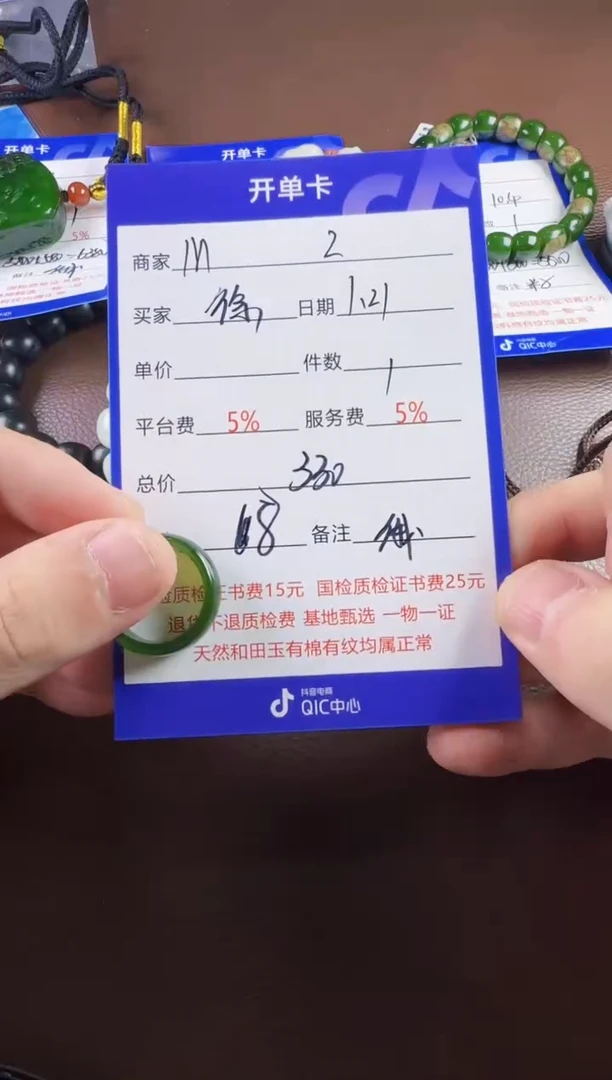 开单卡
开单卡
5%
开单卡
商家 M 2
买家 徐 日期 1.21
单价 件数 1
平台费 5% 服务费 5%
总价 330
68 备注
质检证书费15元 国检质检证书费25元
退货不退质检费 基地甄选 一物一证
天然和田玉有棉有纹均属正常
抖音电商
QIC中心
1
备注
QIC中心